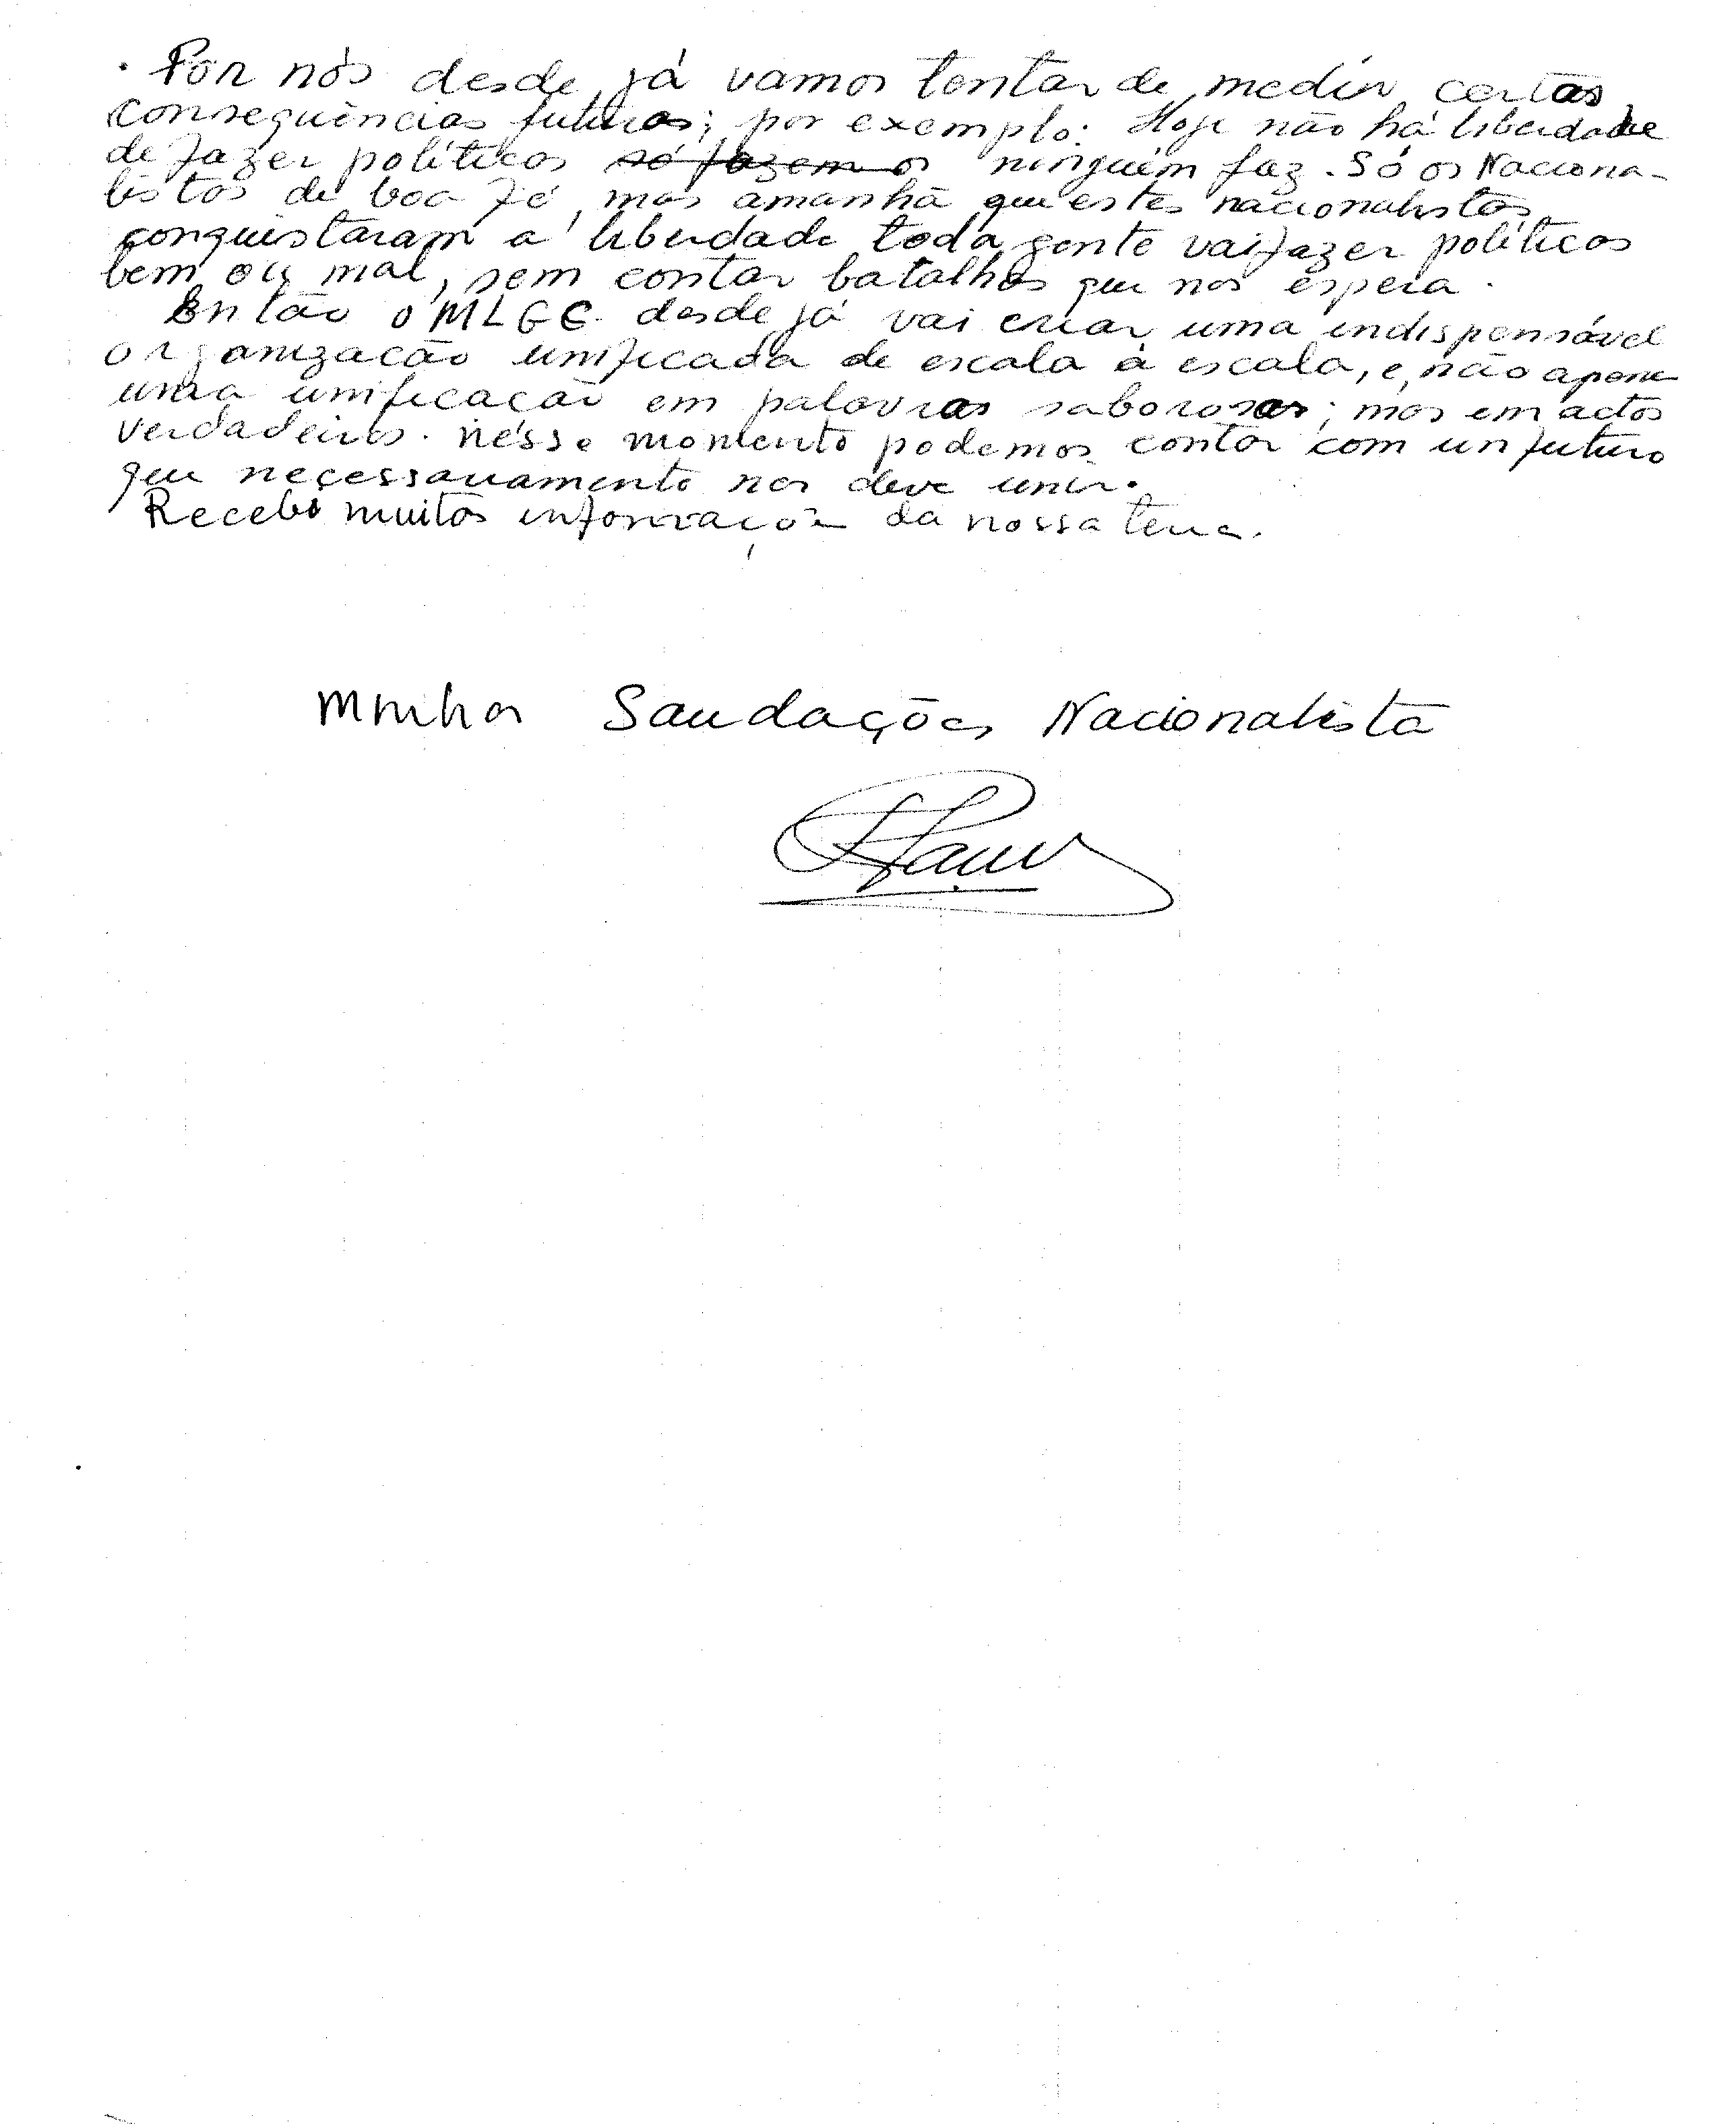 . Por nós desde já vamos tentar de medir certas
consequências futuras; por exemplo: Hoje não há liberdade
de fazer políticas só fazem os ninguém faz. Só os Naciona-
listas de boa fé, mas amanhã que estes nacionalistas
conquistaram a liberdade toda gente vai fazer políticas
bem ou mal, sem contar batalhas que nos espera.
Então o MLGC desde já vai criar uma indispensável
organização unificada de escala à escala, e, não apenas
uma unificação em palavras saborosas; mas em actos
verdadeiros. nésse momento podemos contar com un futuro
que necessariamente nos deve unir.
Recebo muitas informações da nossa terra.
Minhas Saudações Nacionalista